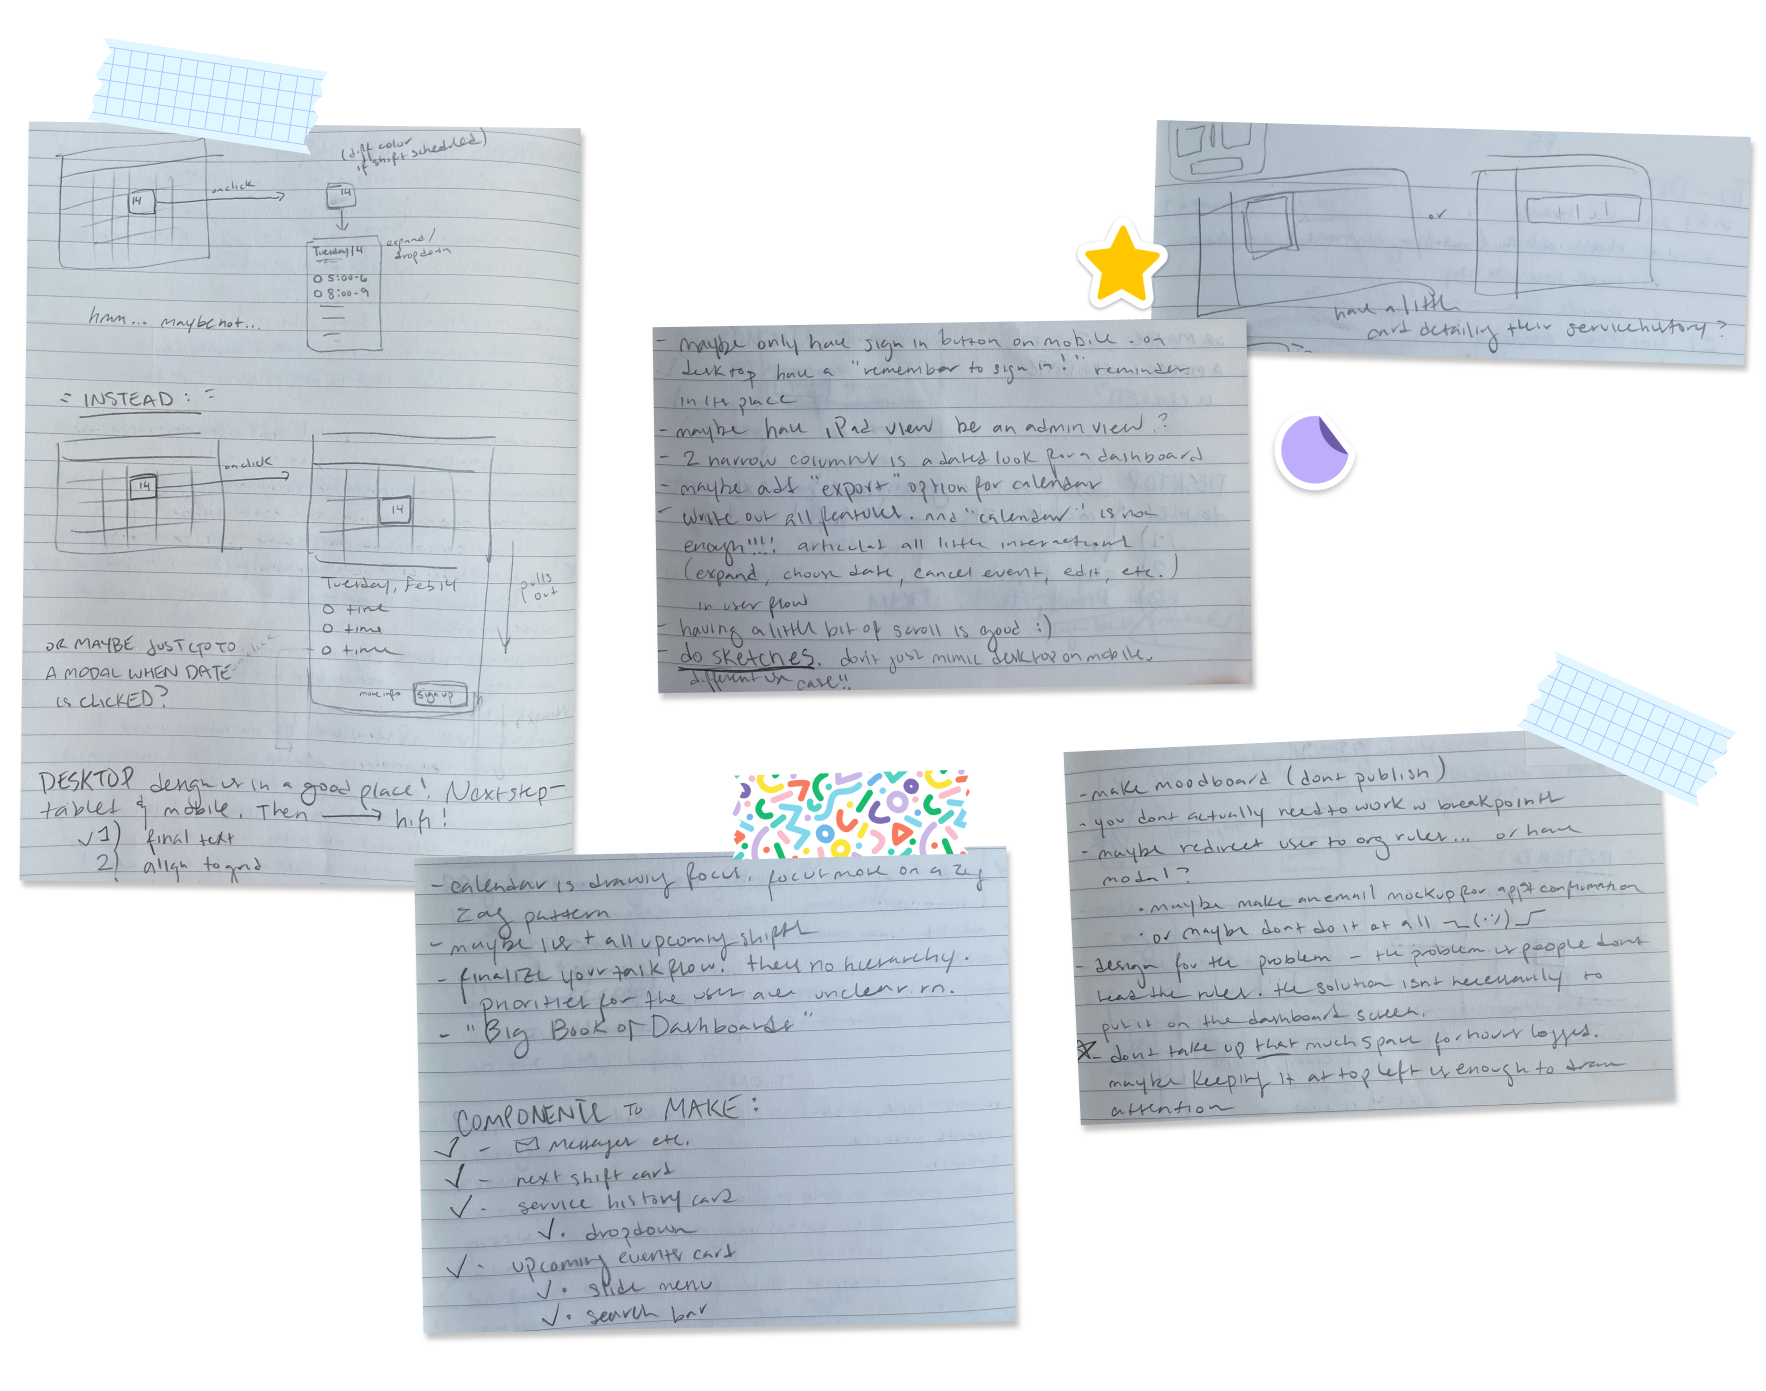 (diff color
if shift scheduled)
14
onclick
14
expand/
dropdown
Tuesday 14
5:00-6
8:00-9
hmm... maybe not...
= INSTEAD: =
onclick
14
14
Tuesday, Feb 14
time
time
time
pulls
out
more info
sign up
OR MAYBE JUST GO TO
A MODAL WHEN DATE
IS CLICKED?
DESKTOP design is in a good place! Next step-
tablet & mobile. Then → hifi!
✓ 1) final text
2) align to grid
- maybe only have sign in button on mobile. on
desktop have a "remember to sign in!" reminder
in its place
- maybe have iPad view be an admin view?
- 2 narrow columns is a dated look for a dashboard
- maybe add "export" option for calendar
- write out all features. and "calendar" is not
enough!!!! articulate all little interactions
(expand, choose date, cancel event, edit, etc.)
in user flow
- having a little bit of scroll is good :)
- do sketches. don't just mimic desktop on mobile.
different use case!!
or
have a little
card detailing their service history?
- calendar is drawing focus. focus more on a zig
zag pattern
- maybe list all upcoming shifts
- finalize your task flow. theres no hierarchy.
priorities for the user are unclear rn.
- "Big Book of Dashboards"
COMPONENTS TO MAKE:
✓ - messages etc.
✓ - next shift card
✓ - service history card
✓ • dropdown
✓ - upcoming events card
✓ • slide menu
✓ • search bar
- make moodboard (dont publish)
- you dont actually need to work w breakpoints
- maybe redirect user to org rules... or have
modal?
• maybe make an email mockup for appt confirmation
• or maybe dont do it at all
- design for the problem - the problem is people dont
read the rules. the solution isnt necessarily to
put it on the dashboard screen.
- dont take up that much space for hours logged.
maybe keeping it at top left is enough to draw
attention